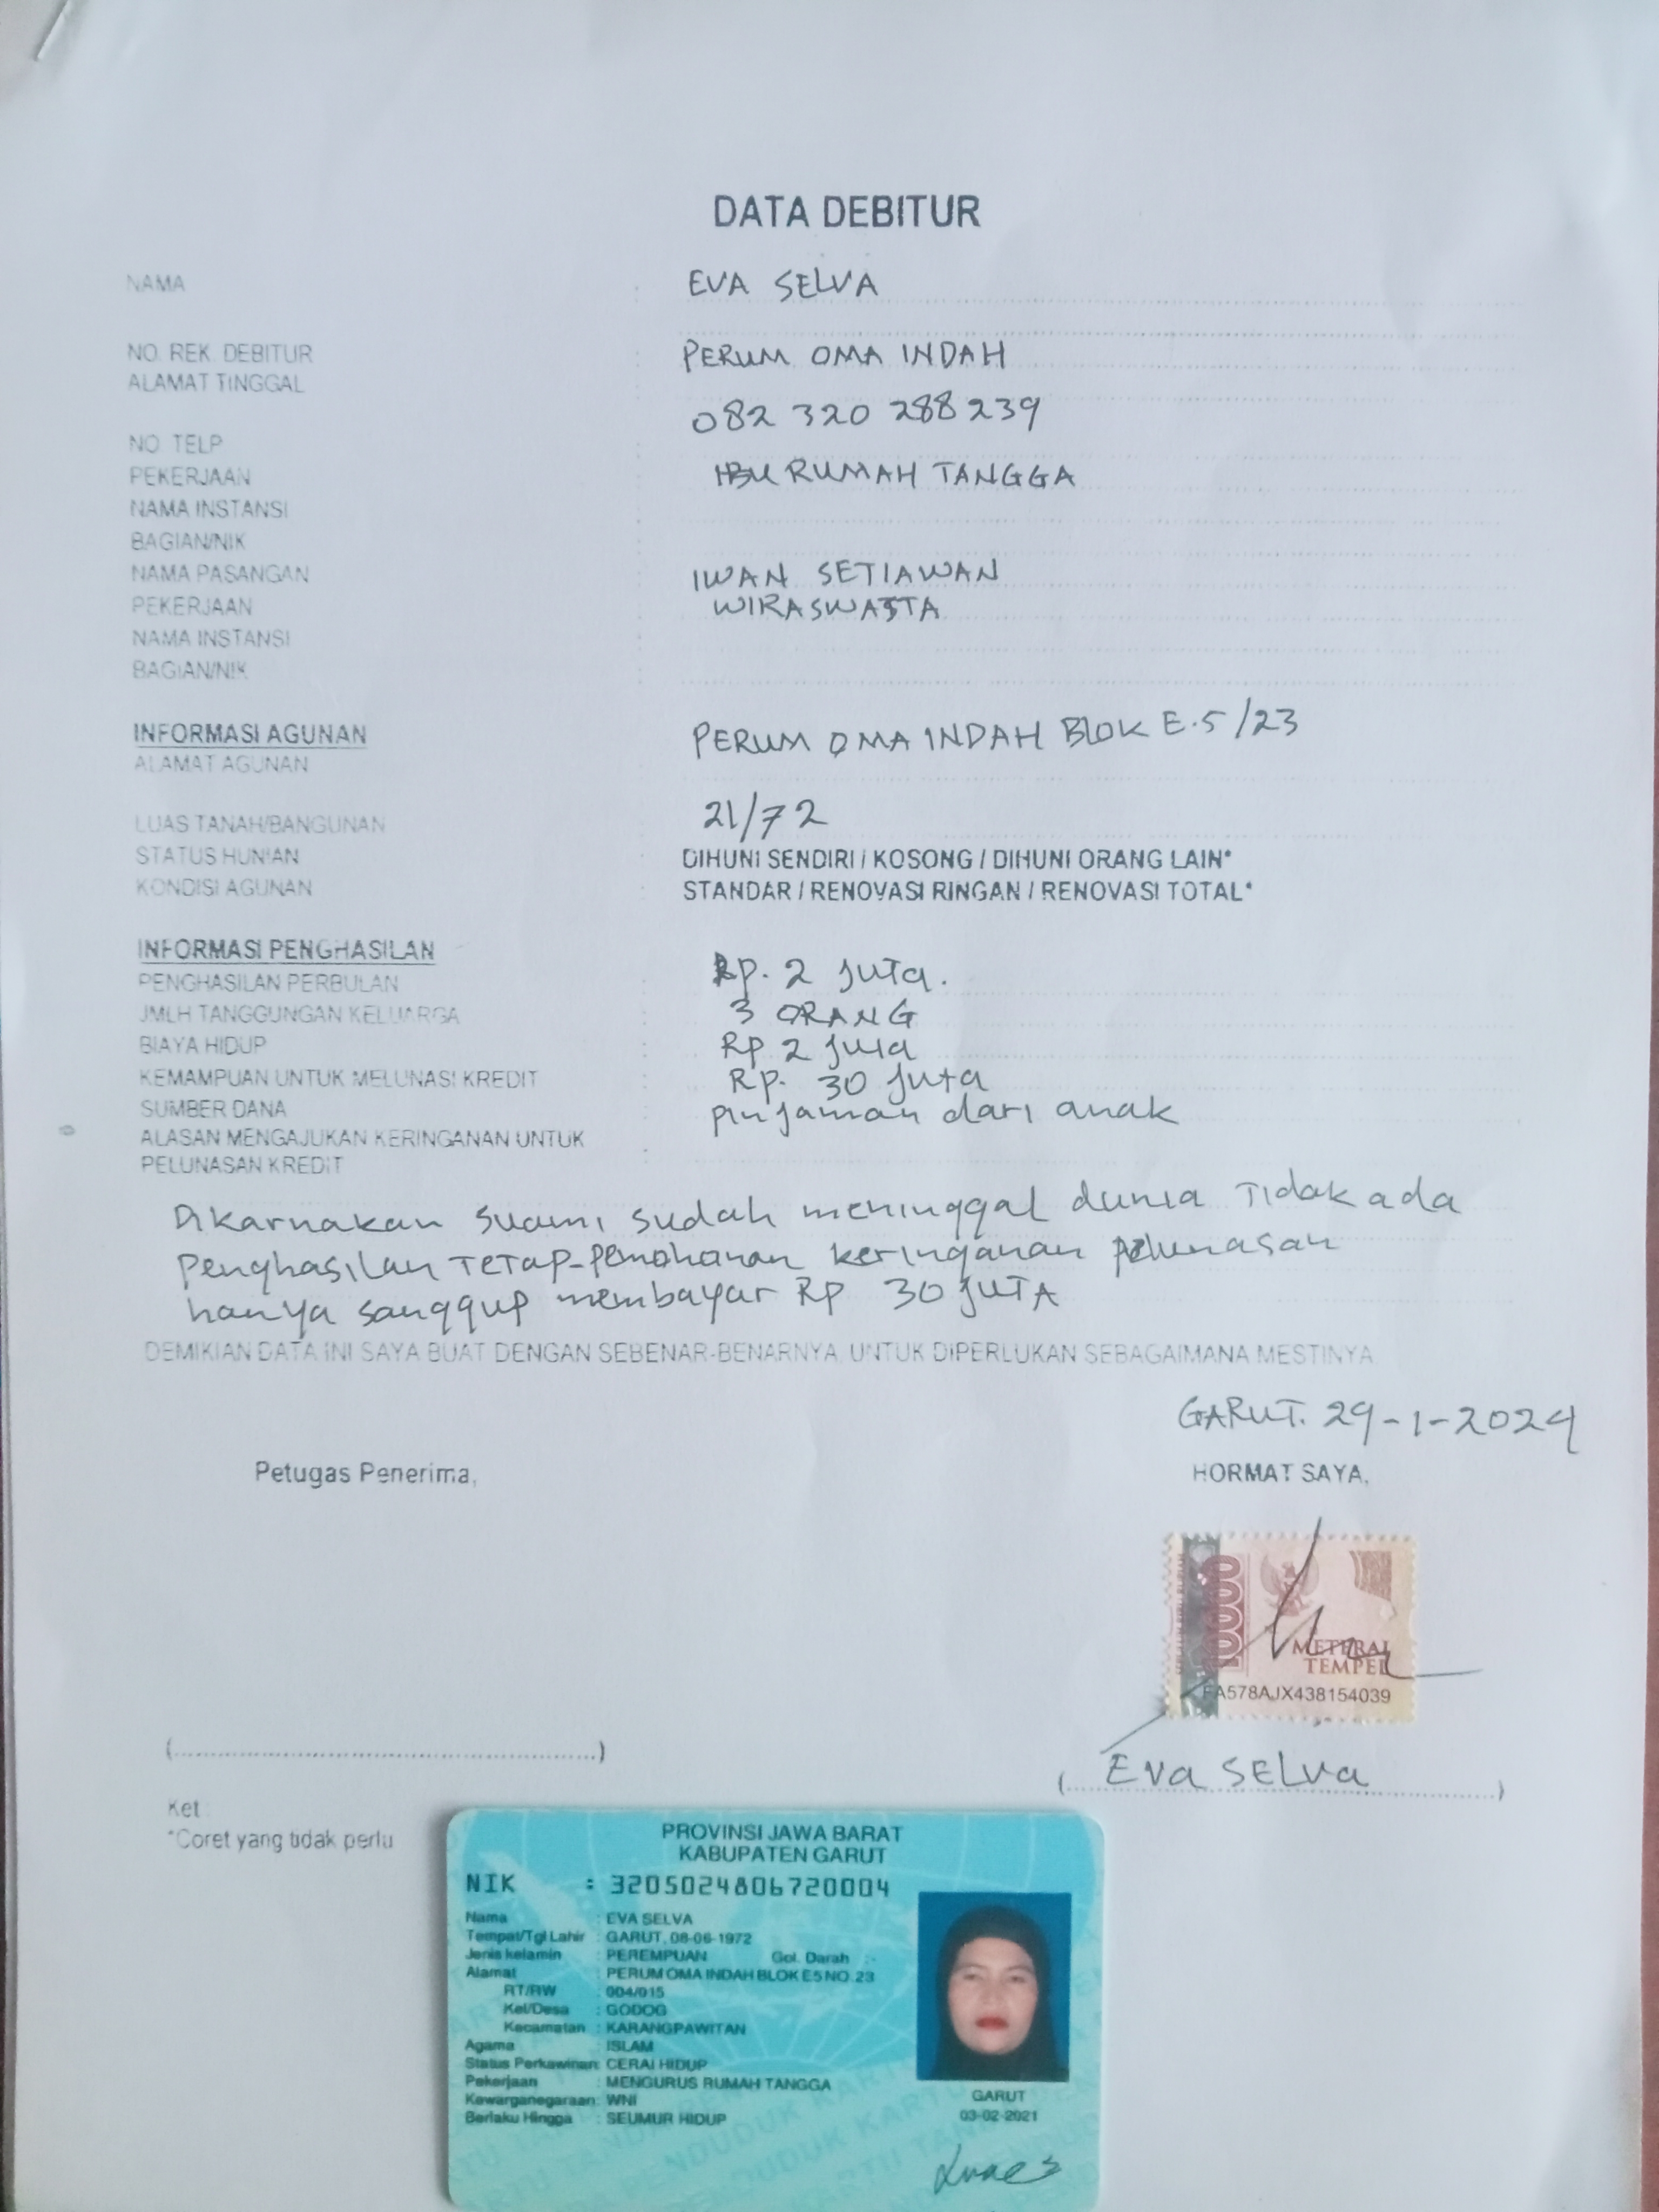 DATA DEBITUR
NAMA : EVA SELVA
NO. REK. DEBITUR : PERUM OMA INDAH
ALAMAT TINGGAL
082 320 288 239
NO. TELP
PEKERJAAN : IBU RUMAH TANGGA
NAMA INSTANSI :
BAGIAN/NIK :
NAMA PASANGAN : IWAN SETIAWAN
PEKERJAAN : WIRASWASTA
NAMA INSTANSI :
BAGIAN/NIK :
INFORMASI AGUNAN
PERUM OMA INDAH BLOK E.5/23
ALAMAT AGUNAN
LUAS TANAH/BANGUNAN : 21/72
STATUS HUNIAN : DIHUNI SENDIRI / KOSONG / DIHUNI ORANG LAIN*
KONDISI AGUNAN : STANDAR / RENOVASI RINGAN / RENOVASI TOTAL*
INFORMASI PENGHASILAN
PENGHASILAN PERBULAN : Rp. 2 juta.
JMLH TANGGUNGAN KELUARGA : 3 ORANG
BIAYA HIDUP : Rp 2 juta
KEMAMPUAN UNTUK MELUNASI KREDIT : Rp. 30 juta
SUMBER DANA : pinjaman dari anak
ALASAN MENGAJUKAN KERINGANAN UNTUK
PELUNASAN KREDIT :
Dikarnakan suami sudah meninggal dunia Tidak ada
penghasilan TETAP-pemohonan keringanan pelunasan
hanya sanggup membayar Rp 30 JUTA
DEMIKIAN DATA INI SAYA BUAT DENGAN SEBENAR-BENARNYA, UNTUK DIPERLUKAN SEBAGAIMANA MESTINYA.
GARUT. 29-1-2024
Petugas Penerima,
HORMAT SAYA,
10000
METERAI
TEMPEL
FA578AJX438154039
(..........)
( Eva SELva )
Ket
*Coret yang tidak perlu
PROVINSI JAWA BARAT
KABUPATEN GARUT
NIK : 3205024806720004
Nama : EVA SELVA
Tempat/Tgl Lahir : GARUT, 08-06-1972
Jenis kelamin : PEREMPUAN Gol. Darah :-
Alamat : PERUM OMA INDAH BLOK E5 NO. 23
RT/RW : 004/015
Kel/Desa : GODOG
Kecamatan : KARANGPAWITAN
Agama : ISLAM
Status Perkawinan: CERAI HIDUP
Pekerjaan : MENGURUS RUMAH TANGGA
Kewarganegaraan: WNI
Berlaku Hingga : SEUMUR HIDUP
GARUT
03-02-2021